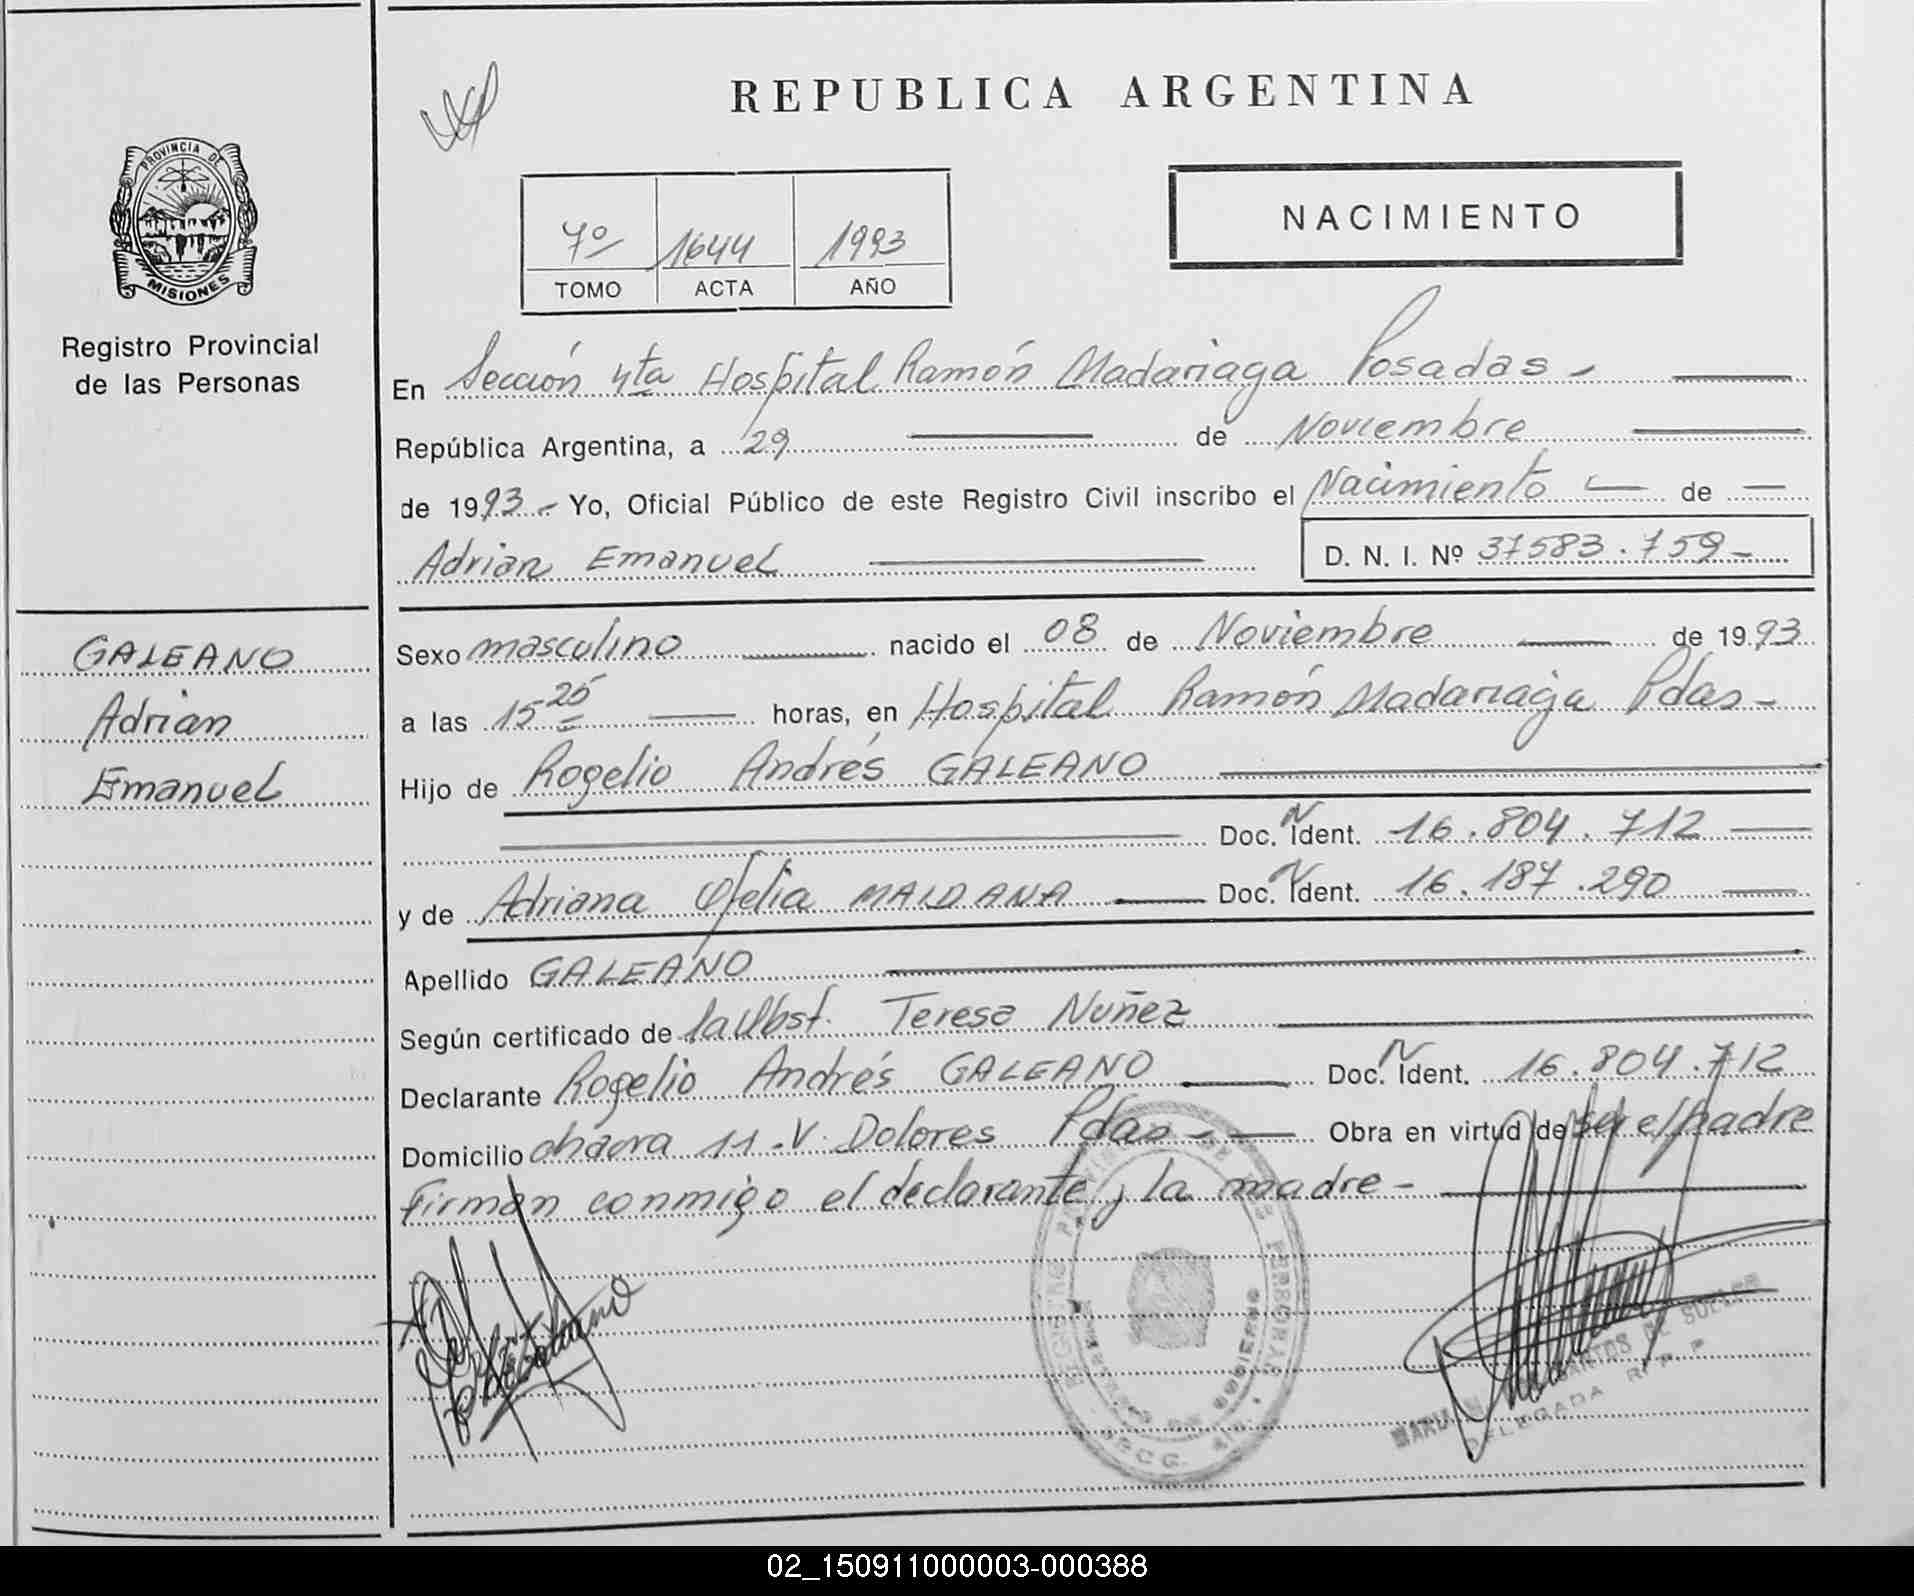 REPUBLICA ARGENTINA
PROVINCIA DE
MISIONES
Registro Provincial
de las Personas
7º 1644 1993
TOMO ACTA AÑO
NACIMIENTO
En Sección 4ta Hospital Ramón Madariaga Posadas -
República Argentina, a 29 de Noviembre
de 1993.- Yo, Oficial Público de este Registro Civil inscribo el Nacimiento de
Adrian Emanuel D. N. I. Nº 37583.759-
GALEANO
Adrian
Emanuel
Sexo masculino nacido el 08 de Noviembre de 1993
a las 15 25 horas, en Hospital Ramón Madariaga Pdas-
Hijo de Rogelio Andrés GALEANO
Doc. N Ident. 16.804.712
y de Adriana Ofelia MAIDANA Doc. N Ident. 16.187.290
Apellido GALEANO
Según certificado de la Obst. Teresa Nuñez
Declarante Rogelio Andrés GALEANO Doc. N Ident. 16.804.712
Domicilio chacra 11.V. Dolores Pdas- Obra en virtud de ser el padre
Firman conmigo el declarante y la madre-
DELEGADA R P P
02_150911000003-000388